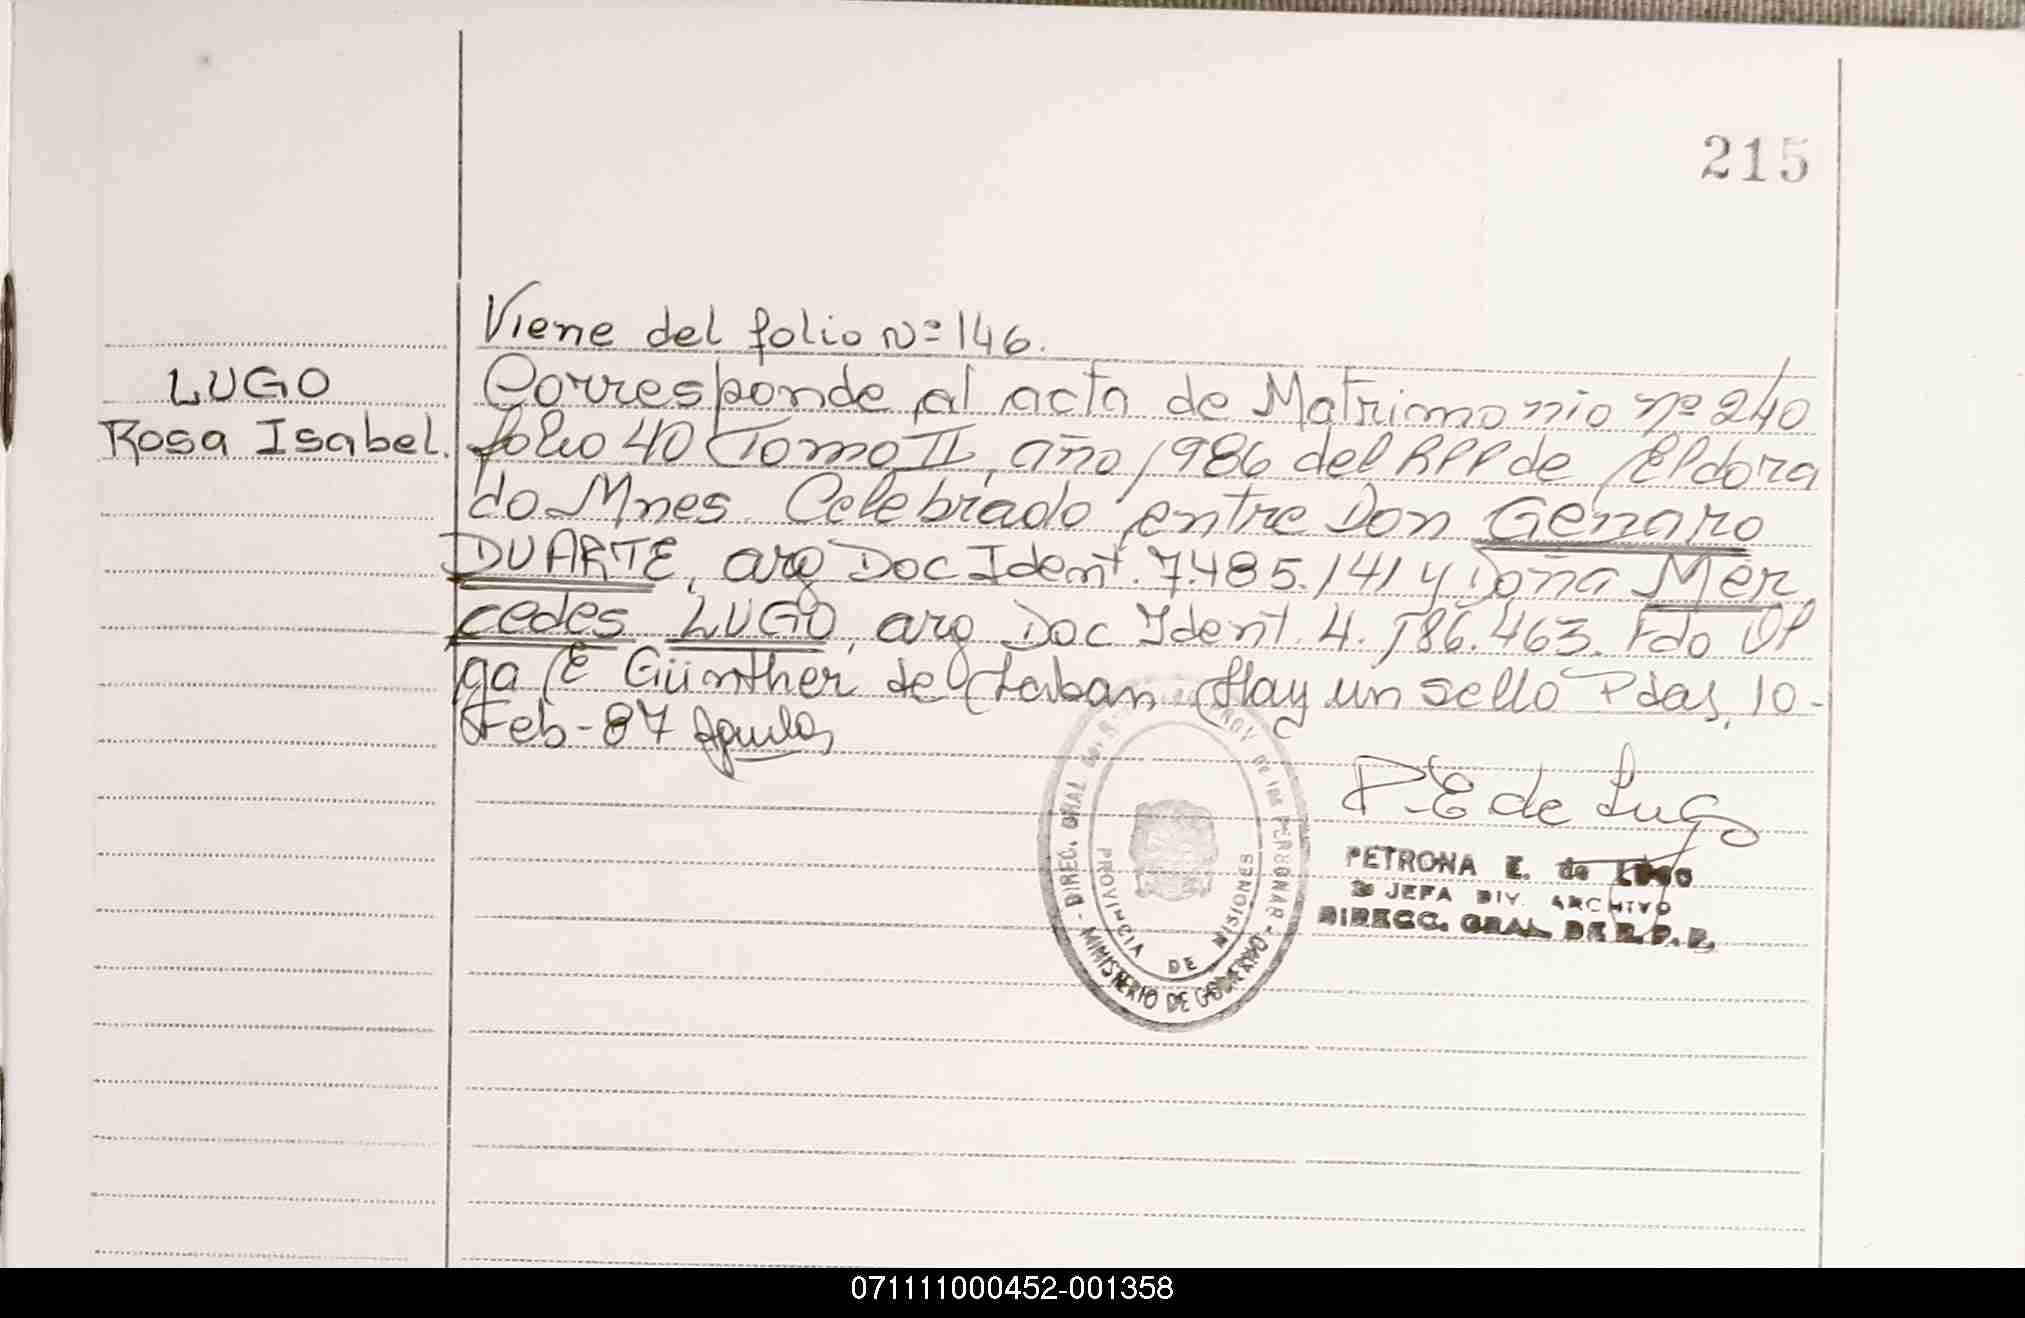 215
Viene del folio Nº 146.
LUGO
Rosa Isabel.
Corresponde al acta de Matrimonio nº 240
folio 40 Tomo II, año 1986 del RPP de Eldora
do Mnes. Celebrado entre Don Genaro
DUARTE, arg Doc Ident. 7.485.141 y Doña Mer
cedes LUGO, arg Doc Ident. 4.586.463. Fdo Ol
ga E Günther de Laban Hay un sello Pdas, 10-
Feb-87
P.E de Lugo
PETRONA E. de LUGO
JEFA DIV. ARCHIVO
DIRECC. GRAL DE R. P. P.
DIREC. GRAL DEL R. PROV. DE LAS PERSONAS - MINISTERIO DE GOBIERNO -
PROVINCIA DE MISIONES
071111000452-001358